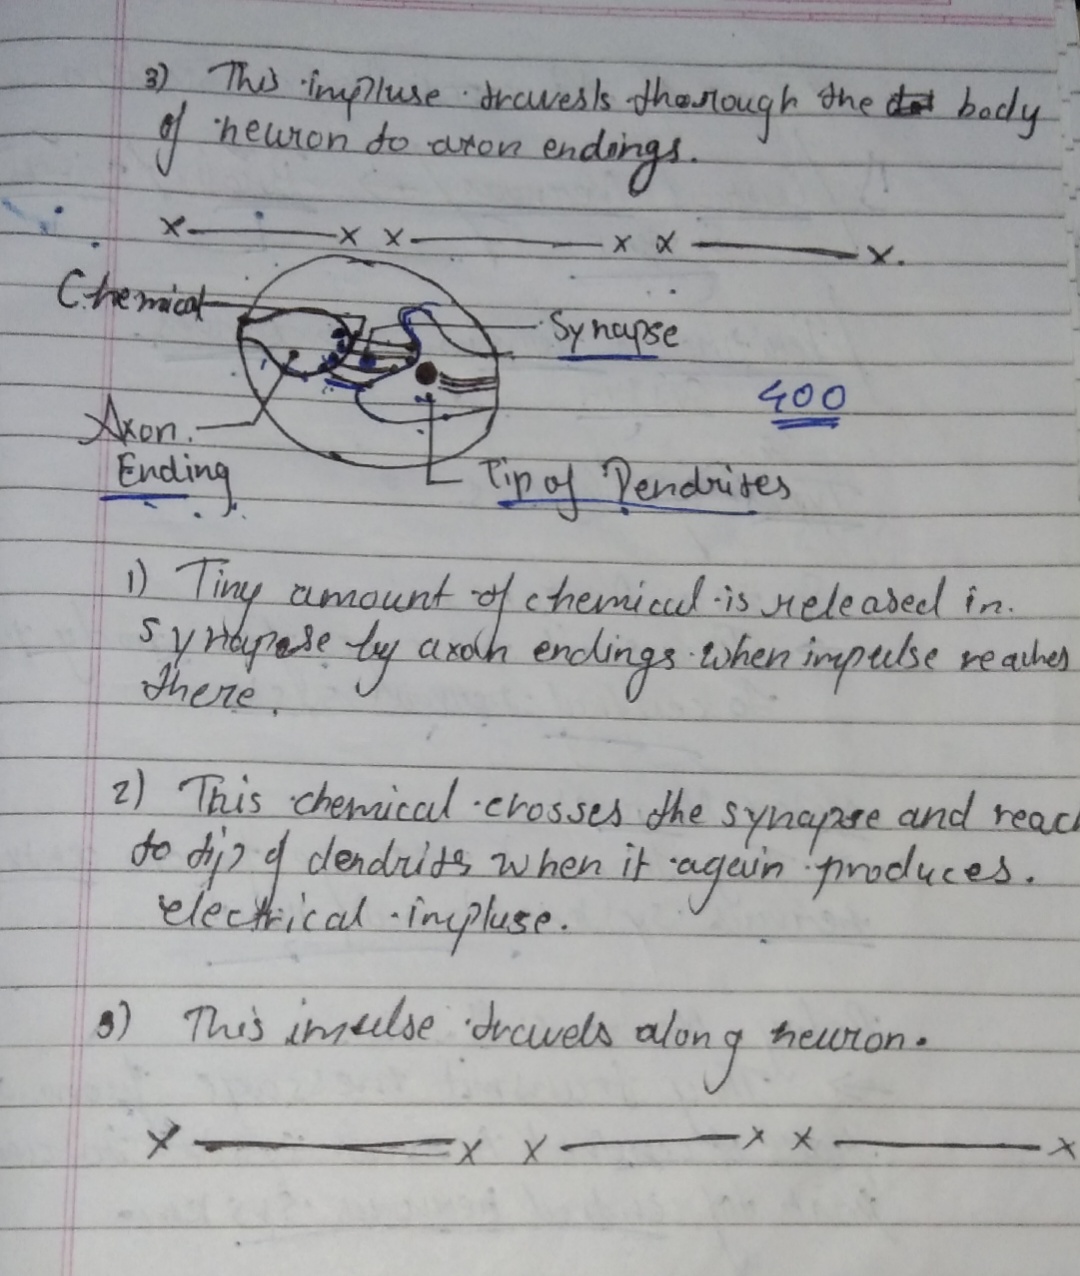 3) This impluse travesls thorough the body
of neuron to axon endings.
x x x x x x.
Chemical
Synapse
400
Axon.
Ending
Tip of Dendrites
1) Tiny amount of chemical is released in.
synapse by axon endings when impulse reaches
there.
2) This chemical crosses the synapse and reac
to tip of dendrits when it again produces.
electrical impluse.
3) This impulse travels along neuron.
x x x x x x